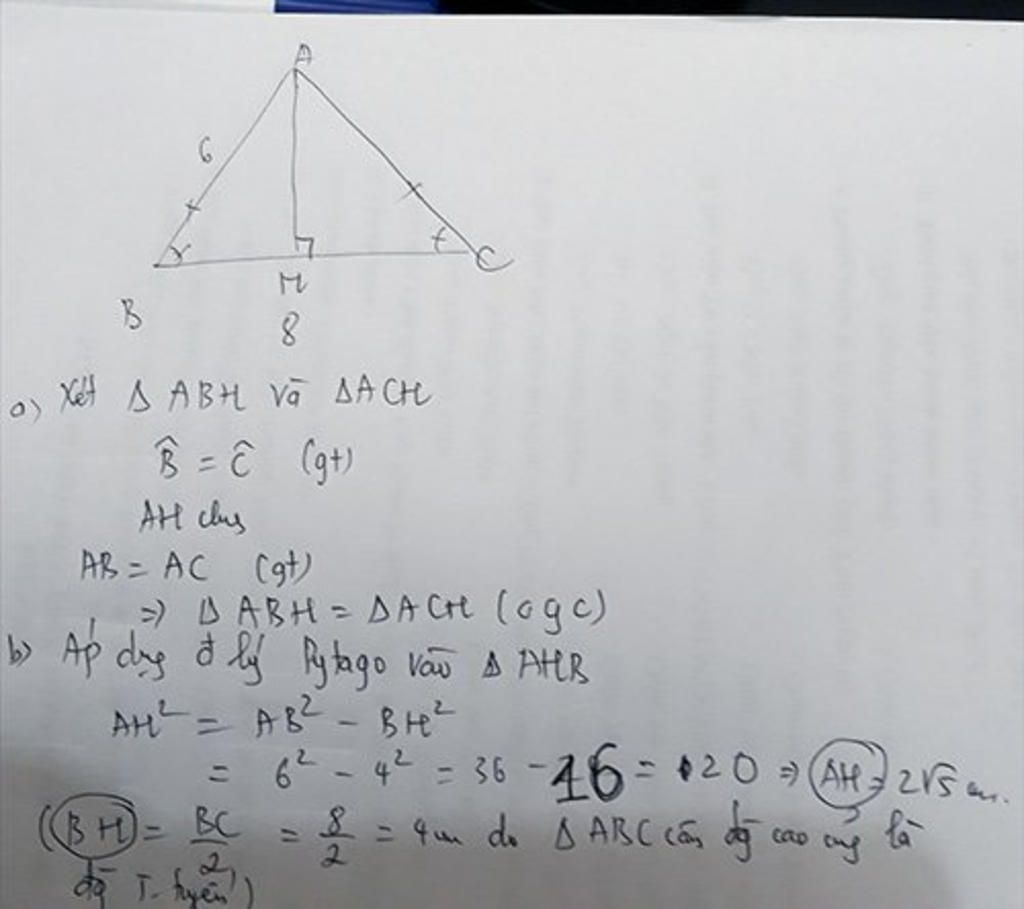 A
6
B
H
C
8
a) Xét Δ ABH và ΔACH
B̂ = Ĉ (gt)
AH chung
AB = AC (gt)
=> Δ ABH = Δ ACH (c g c)
b) Áp dụng đ lý Pytago vào Δ AHB
AH² = AB² - BH²
= 6² - 4² = 36 - 16 = 20 => AH = 2√5 cm.
(BH = BC/2 = 8/2 = 4cm do Δ ABC cân đg cao cũng là
đg T. tuyến)